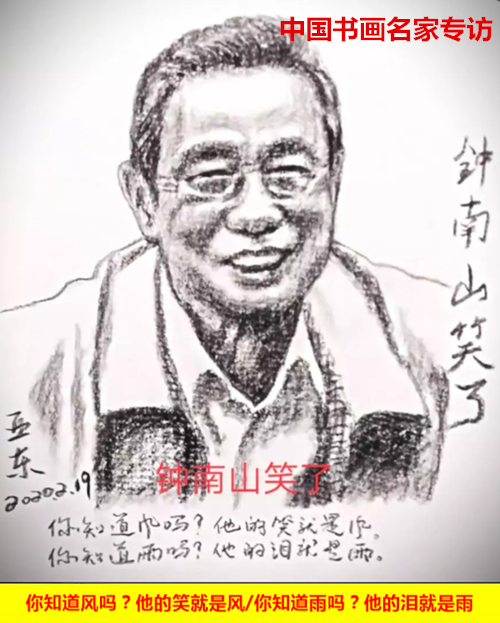 中国书画名家专访
钟南山笑了
亚东
2020.2.19
钟南山笑了
你知道风吗？他的笑就是风。
你知道雨吗？他的泪就是雨。
你知道风吗？他的笑就是风/你知道雨吗？他的泪就是雨